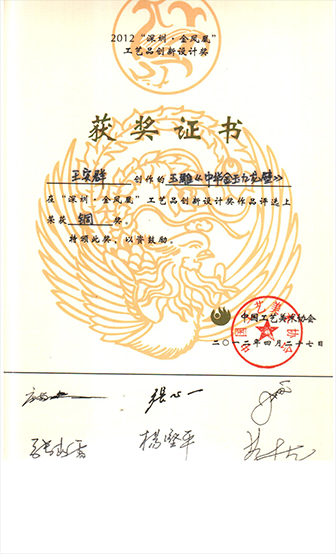 2012“深圳·金凤凰”
工艺品创新设计奖
获奖证书
创作的 玉雕《中华金玉九龙壁》
在“深圳·金凤凰”工艺品创新设计奖作品评选上
荣获 铜 奖。
特颁此奖，以资鼓励。
中国工艺美术协会
二〇一二年四月二十七日
杨坚平